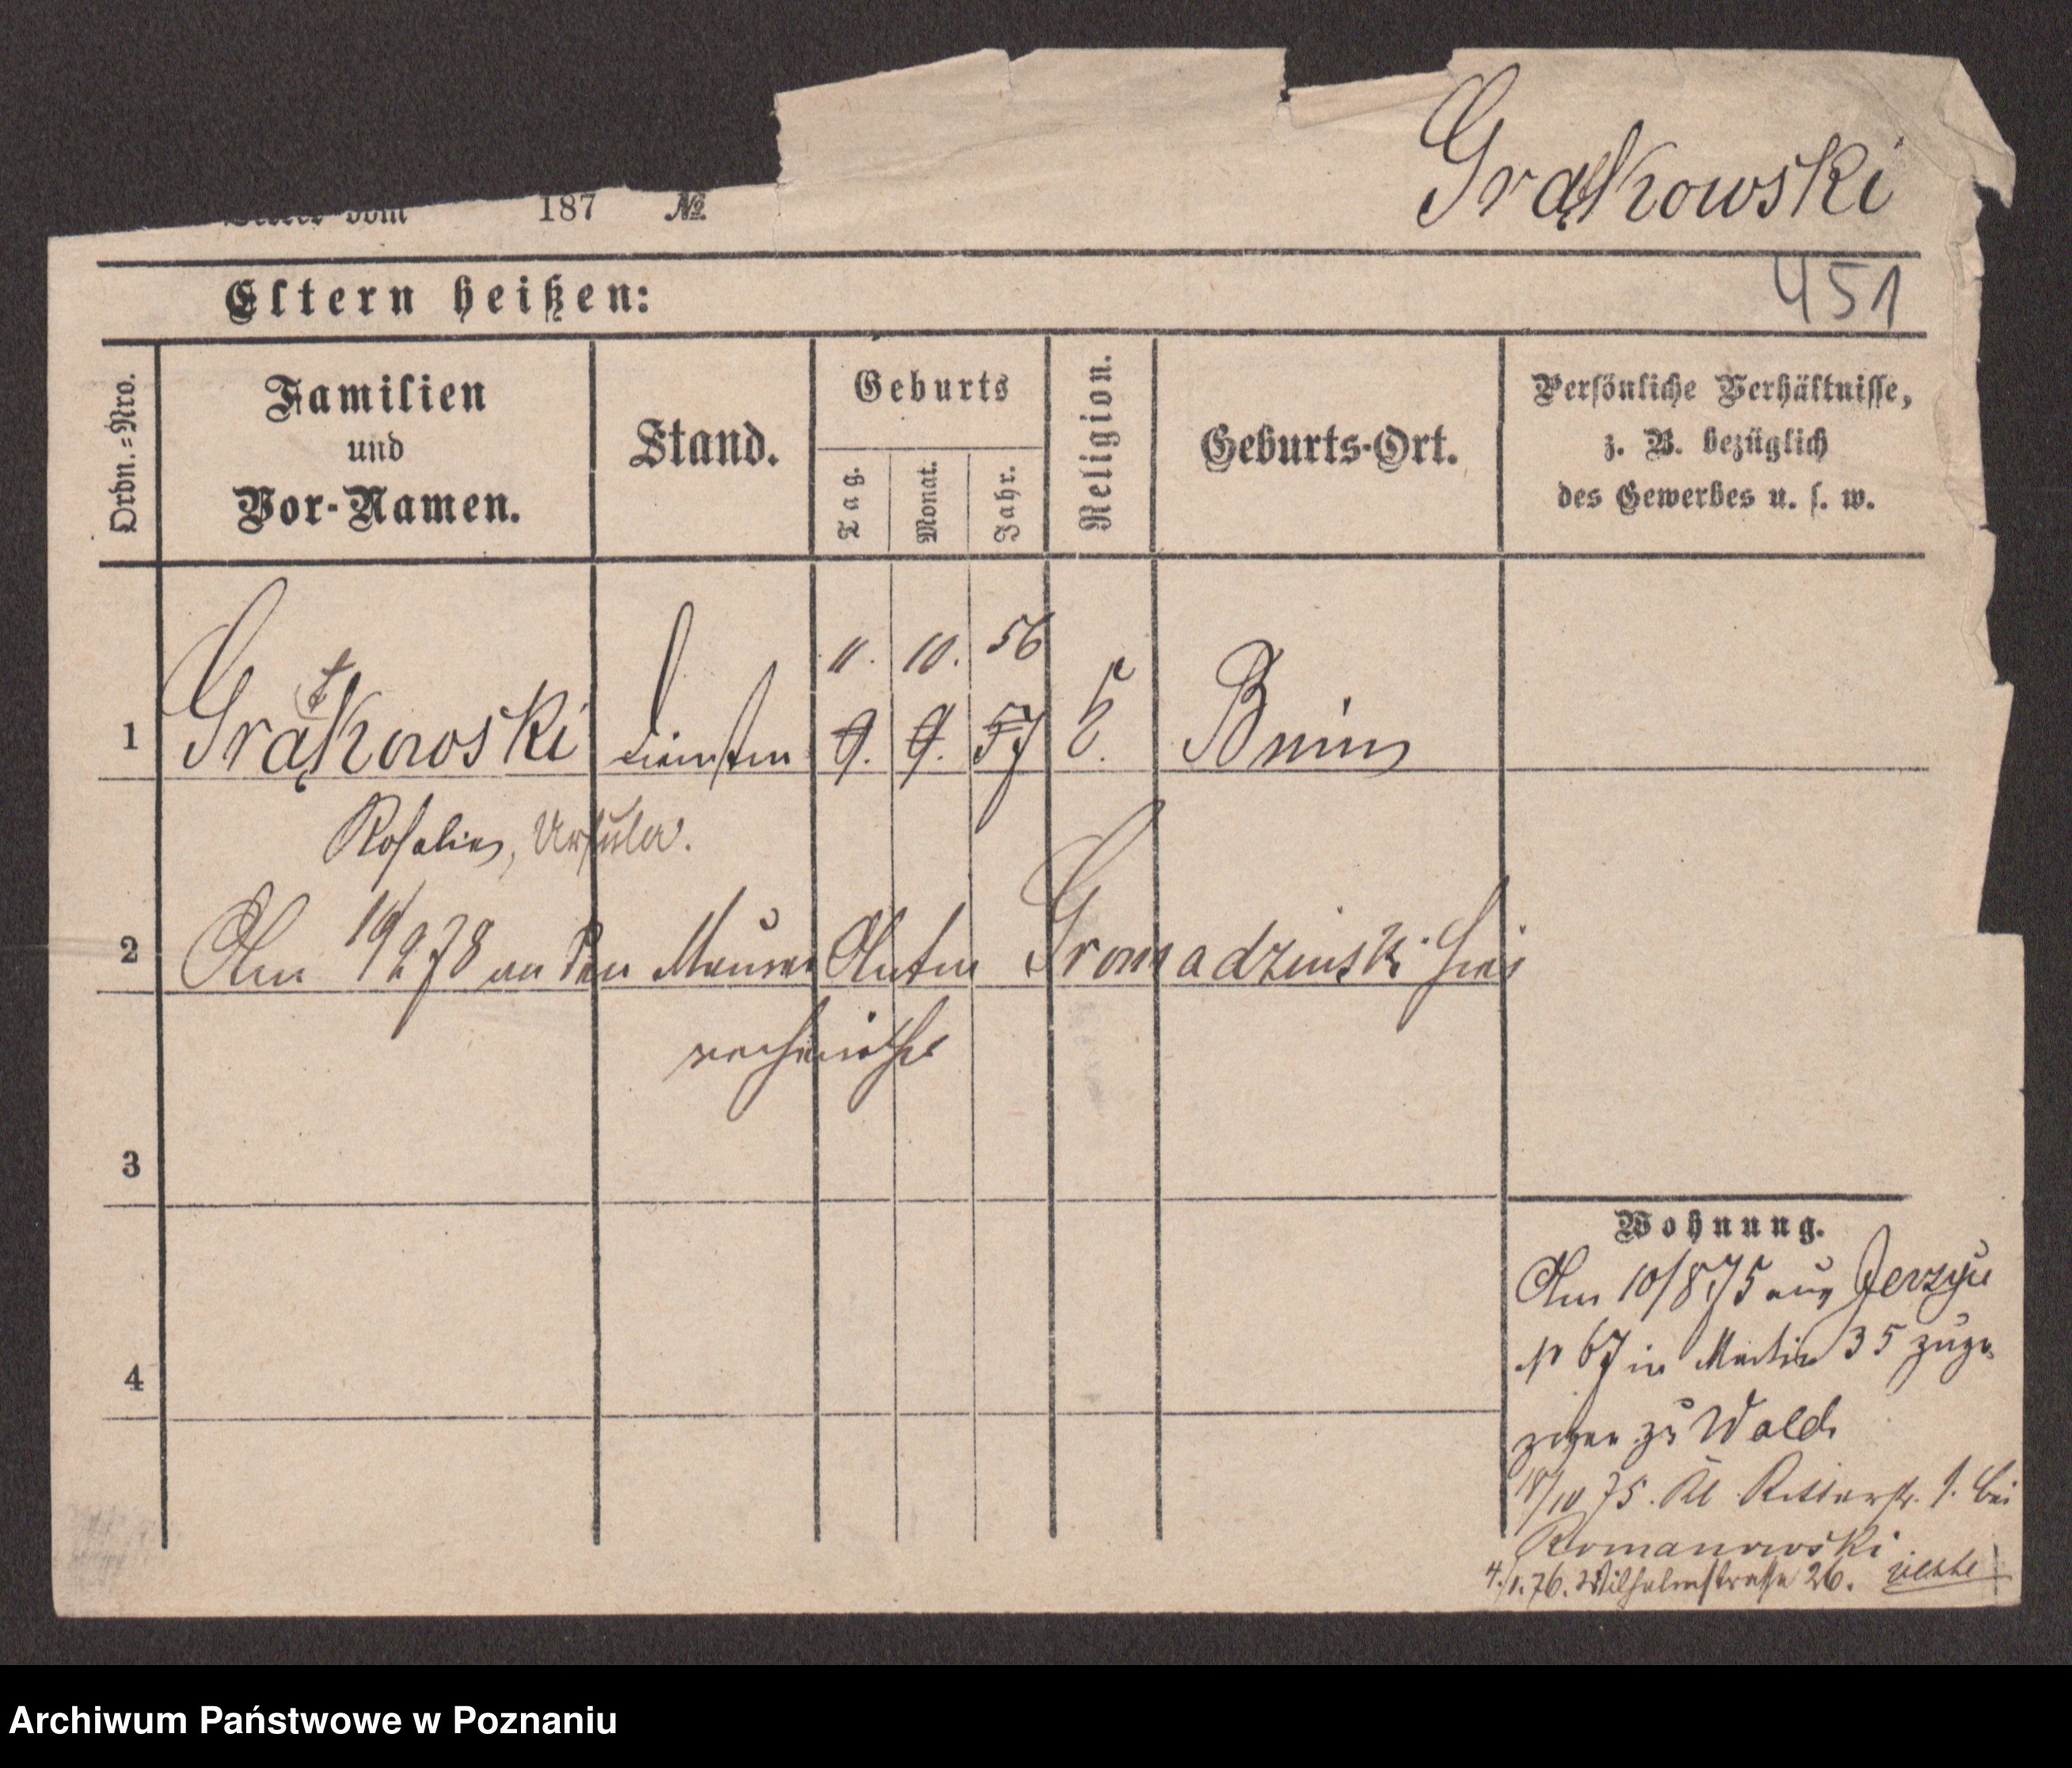 187 №
Grątkowski
Eltern heißen:
451
Ordn.=Nro.
Familien
und
Vor-Namen.
Stand.
Geburts
Tag.
Monat.
Jahr.
Religion.
Geburts-Ort.
Persönliche Verhältnisse,
z. B. bezüglich
des Gewerbes u. s. w.
11. 10. 56
1 Grątkowski 9. 9. 57 Bnin
Rosalia, Ursula.
2 Am 19/2 78 an den Maurer Anton Gromadzinski hier
verheirathet
3
4
Wohnung.
Am 10/8 75 aus Jerzyce
№ 67 in Martin 35 zuge
zogen zu Wald
18/10 75. Kl. Ritterstr. 1. bei
Romanowski
4./1. 76. Wilhelmstraße 26.
Archiwum Państwowe w Poznaniu